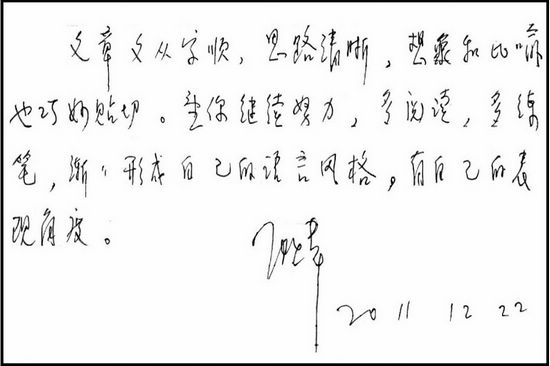 文章文从字顺，思路清晰，想象和比喻
也巧妙贴切。望你继续努力，多阅读，多练
笔，渐渐形成自己的语言风格，有自己的表
现角度。
2011 12 22